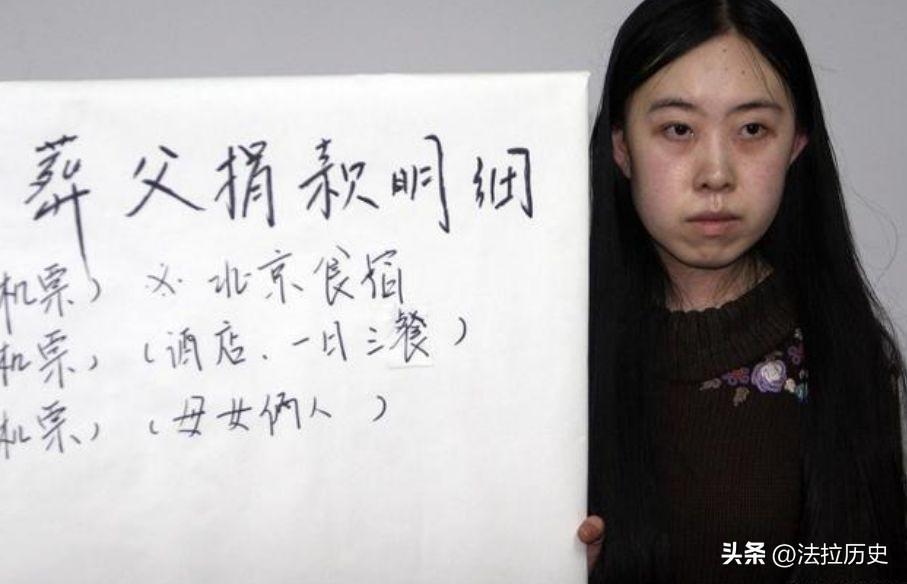 葬父捐款明细
机票） ※ 北京食宿
机票） （酒店、一日三餐）
机票） （母女俩人 ）
头条 @法拉历史